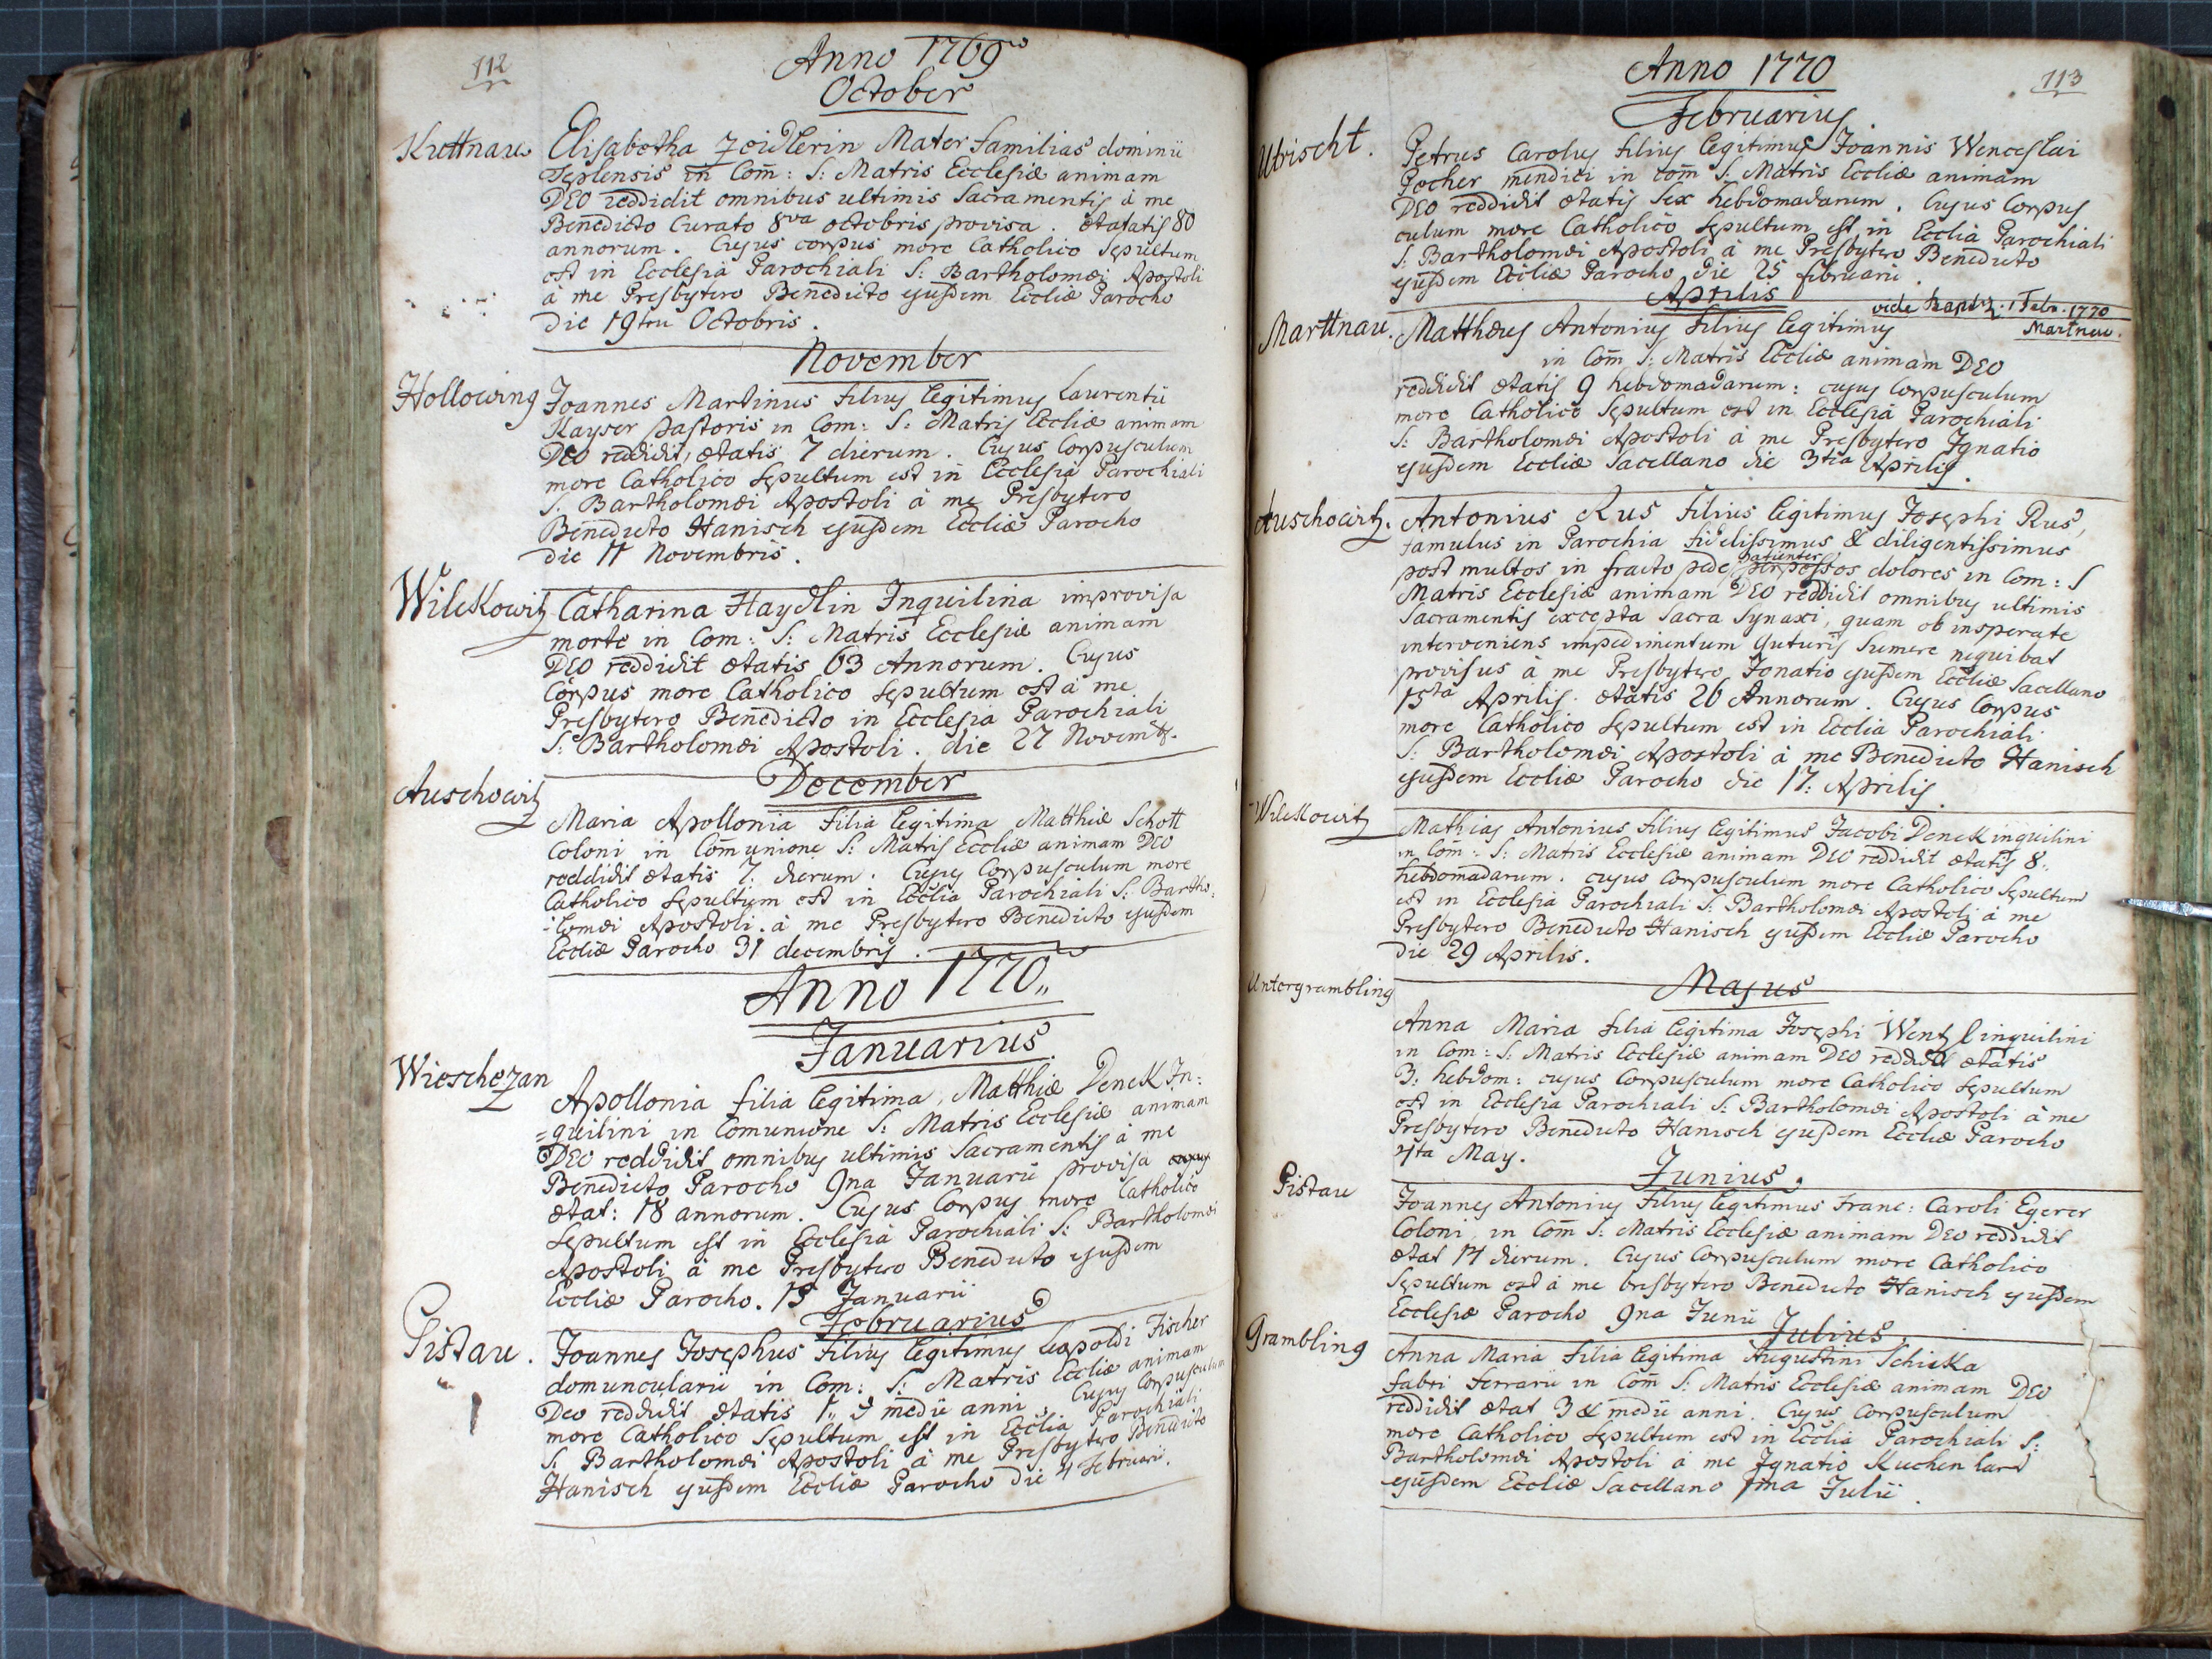 112
Anno 1769
October
Kuttnau
Elisabetha Zeidlerin Mater familias dominii
Teplensis in Com̄: S: Matris Ecclesiæ animam
DEO reddidit omnibus ultimis Sacramentis à me
Benedicto Curato 8va octobris provisa. ætatis 80
annorum. Cujus corpus more Catholico Sepultum
est in Ecclesia Parochiali S: Bartholomæi Apostoli
à me Presbytero Benedicto ejusdem Eccliæ Parocho
die 19 Octobris.
November
Hollowing
Joannes Martinus filius legitimus Laurentii
Kayser pastoris in Com: S: Matris Eccliæ animam
DEO reddidit, ætatis 7 dierum. Cujus Corpusculum
more Catholico Sepultum est in Ecclesia Parochiali
S. Bartholomæi Apostoli à me Presbytero
Benedicto Hanisch ejusdem Eccliæ Parocho
die 11 Novembris.
Wilckowitz
Catharina Haydlin Inquilina improvisa
morte in Com: S: Matris Ecclesiæ animam
DEO reddidit ætatis 63 Annorum. Cujus
Corpus more Catholico sepultum est à me
Presbytero Benedicto in Ecclesia Parochiali
S: Bartholomæi Apostoli. die 27 Novemb.
December
Auschowitz
Maria Apollonia filia legitima Matthiæ Schott
Coloni in Com̄unione S: Matris Eccliæ animam DEO
reddidit ætatis 7. dierum. Cujus Corpusculum more
Catholico Sepultum est in Ecclia Parochiali S: Bartho-
-lomæi Apostoli. à me Presbytero Benedicto ejusdem
Eccliæ Parocho 31 decembris.
Anno 1770
Januarius
Wieschezan
Apollonia filia legitima, Matthiæ Denck In:
=quilini in Comunione S: Matris Ecclesiæ animam
DEO reddidit omnibus ultimis Sacramentis à me
Benedicto Parocho 9na Januarii provisa
ætat: 18 annorum. Cujus Corpus more Catholico
Sepultum est in Ecclesia Parochiali S: Bartholomæi
Apostoli à me Presbytero Benedicto ejusdem
Eccliæ Parocho. 13 Januarii
Februarius
Pistau.
Joannes Josephus filius legitimus Leopoldi Fischer
domuncularii in Com: S: Matris Eccliæ animam
Deo reddidit ætatis 1 & medii anni. Cujus Corpusculum
more Catholico Sepultum est in Ecclia Parochiali
S. Bartholomæi Apostoli à me Presbytero Benedicto
Hanisch ejusdem Eccliæ Parocho die 4 Februarii.
113
Anno 1770
Februarius
Utrischt.
Petrus Carolus filius legitimus Joannis Wenceslai
Pocher mendici in com̄ S: Matris Eccliæ animam
DEO reddidit ætatis Sex hebdomadarum. Cujus Corpus
culum more Catholico Sepultum est in Ecclia Parochiali
S: Bartholomæi Apostoli à me Presbytero Benedicto
ejusdem Eccliæ Parocho die 25 februarii.
Aprilis
vide 1 Febr. 1770
Martnau.
Marttnau.
Matthæus Antonius filius legitimus
in Com̄ S: Matris Eccliæ animam DEO
reddidit ætatis 9 hebdomadarum: cujus Corpusculum
more Catholico Sepultum est in Ecclesia Parochiali
S: Bartholomæi Apostoli à me Presbytero Ignatio
ejusdem Eccliæ Sacellano die 3tia Aprilis.
Auschowitz.
Antonius Rus filius legitimus Josephi Rus,
famulus in Parochia fidelissimus & diligentissimus
post multos in fracto pede patienter perpessos dolores in Com: S
Matris Ecclesiæ animam DEO reddidit omnibus ultimis
Sacramentis excepta Sacra Synaxi, quam ob insperate
interveniens impedimentum guturis Sumere nequibat
provisus à me Presbytero Ignatio ejusdem Eccliæ Sacellano
15ta Aprilis. ætatis 26 Annorum. Cujus Corpus
more Catholico Sepultum est in Ecclia Parochiali
S: Bartholomæi Apostoli à me Benedicto Hanisch
ejusdem Eccliæ Parocho die 17: Aprilis.
Wilckowitz
Mathias Antonius filius legitimus Jacobi Denck inquilini
in Com̄: S: Matris Ecclesiæ animam DEO reddidit ætatis 8.
hebdomadarum. cujus Corpusculum more Catholico Sepultum
est in Ecclesia Parochiali S: Bartholomæi Apostoli à me
Presbytero Benedicto Hanisch ejusdem Eccliæ Parocho
die 29 Aprilis.
Majus
Untergrambling
Anna Maria filia legitima Josephi Wentzl inquilini
in Com: S: Matris Ecclesiæ animam DEO reddidit ætatis
3: hebdom: cujus Corpusculum more Catholico sepultum
est in Ecclesia Parochiali S: Bartholomæi Apostoli à me
Presbytero Benedicto Hanisch ejusdem Eccliæ Parocho
4ta May.
Junius.
Pistau
Joannes Antonius filius legitimus Franc: Caroli Egerer
Coloni, in Com̄ S: Matris Ecclesiæ animam DEO reddidit
ætat 14 dierum. Cujus Corpusculum more Catholico
Sepultum est à me Presbytero Benedicto Hanisch ejusdem
Ecclesiæ Parocho 9na Junii
Julius.
Grambling
Anna Maria filia legitima Augustini Schicka
fabri ferrarii in Com̄ S: Matris Ecclesiæ animam DEO
reddidit ætat 3 & medii anni. Cujus Corpusculum
more Catholico sepultum est in Ecclia Parochiali S:
Bartholomæi Apostoli à me Ignatio Kuchenhard
ejusdem Eccliæ Sacellano 1ma Julii.